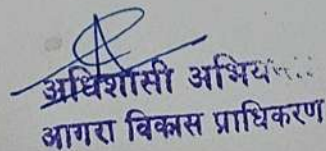 अधिशासी अभिय
आगरा विकास प्राधिकरण